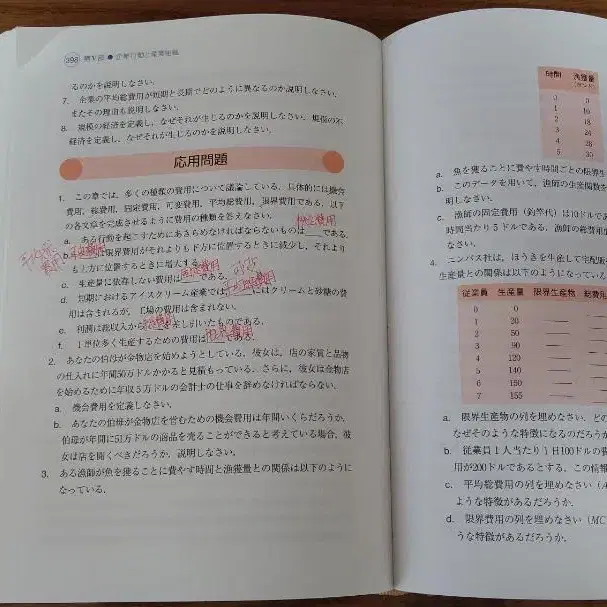 398 第Ⅴ部 ● 企業行動と産業組織
るのかを説明しなさい。
7. 企業の平均総費用が短期と長期でどのように異なるのか説明しなさい。
またその理由も説明しなさい。
8. 規模の経済を定義し、なぜそれが生じるのかを説明しなさい。規模の不
経済を定義し、なぜそれが生じるのかを説明しなさい。
応用問題
1. この章では、多くの種類の費用について議論している。具体的には機会
費用、総費用、固定費用、可変費用、平均総費用、限界費用である。以下
の各文章を完成させるように費用の種類を答えなさい。
a. ある行動を起こすためにあきらめなければならないものは 機会費用 である。
限界費用がそれよりも下方に位置するときに減少し、それより
も上方に位置するときに増大する。
c. 生産量に依存しない費用は 固定費用 である。
d. 短期におけるアイスクリーム産業では にはクリームと砂糖の費
用は含まれるが、工場の費用は含まれない。
e. 利潤は総収入から 差し引いたものである。
f. 1単位多く生産するための費用は 限界費用 である。
2. あなたの伯母が金物店を始めようとしている。彼女は、店の家賃と品物
の仕入れに年間50万ドルかかると見積もっている。さらに、彼女は金物店
を始めるために年収5万ドルの会計士の仕事を辞めなければならない。
a. 機会費用を定義しなさい。
b. あなたの伯母が金物店を営むための機会費用は年間いくらだろうか。
伯母が年間に51万ドルの商品を売ることができると考えている場合、彼
女は店を開くべきだろうか。説明しなさい。
3. ある漁師が魚を獲ることに費やす時間と漁獲量との関係は以下のように
なっている。
時間 漁獲量
0 0
1 10
2 18
3 24
4 28
5 30
a. 魚を獲ることに費やす時間ごとの限界生
b. このデータを用いて、漁師の生産関数を
明しなさい。
c. 漁師の固定費用(釣竿代)は10ドルで
時間当たり5ドルである。漁師の総費用
なさい。
4. ニンバス社は、ほうきを生産して宅配販
生産量との関係は以下のようになっている
従業員 生産量 限界生産物 総費用
0 0
1 20
2 50
3 90
4 120
5 140
6 150
7 155
a. 限界生産物の列を埋めなさい。どの
なぜそのような特徴になるのだろうか
b. 従業員1人当たり1日100ドルの費
用が200ドルであるとする。この情報
c. 平均総費用の列を埋めなさい(A
ような特徴があるだろうか。
d. 限界費用の列を埋めなさい(MC
うな特徴があるだろうか。